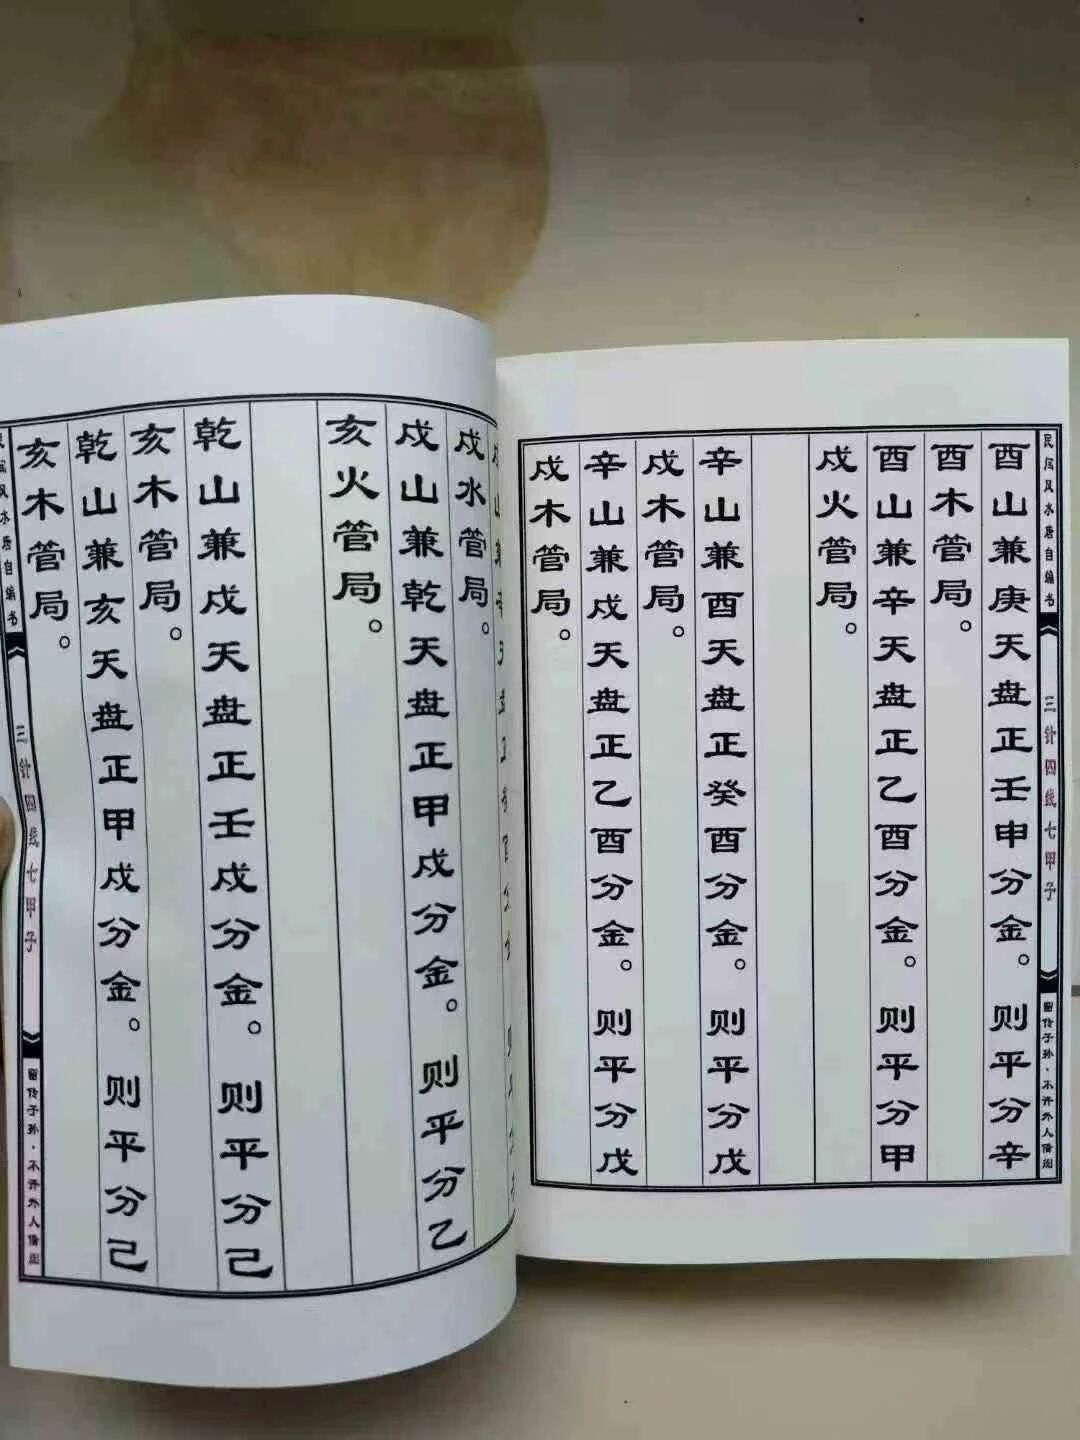 民间风水唐自编书
三针四线七甲子
留传子孙·不许外人借阅
酉山兼庚天盘正壬申分金。则平分辛
酉木管局。
酉山兼辛天盘正乙酉分金。则平分甲
戍火管局。
辛山兼酉天盘正癸酉分金。则平分戊
戍木管局。
辛山兼戍天盘正乙酉分金。则平分戊
戍木管局。
戍水管局。
戍山兼乾天盘正甲戍分金。则平分乙
亥火管局。
乾山兼戍天盘正壬戍分金。则平分己
亥木管局。
乾山兼亥天盘正甲戍分金。则平分己
亥木管局。
民间风水唐自编书
三针四线七甲子
留传子孙·不许外人借阅